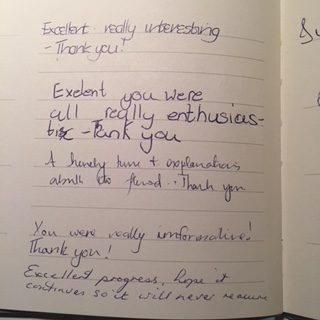 Excellent really interesting
- Thank you!
Exelent you were
all really enthusias-
tic - Thank you
A lovely time + explanations
about the flood... Thank you
You were really imformative!
Thank you!
Excellent progress, hope it
continues so it will never reoccur